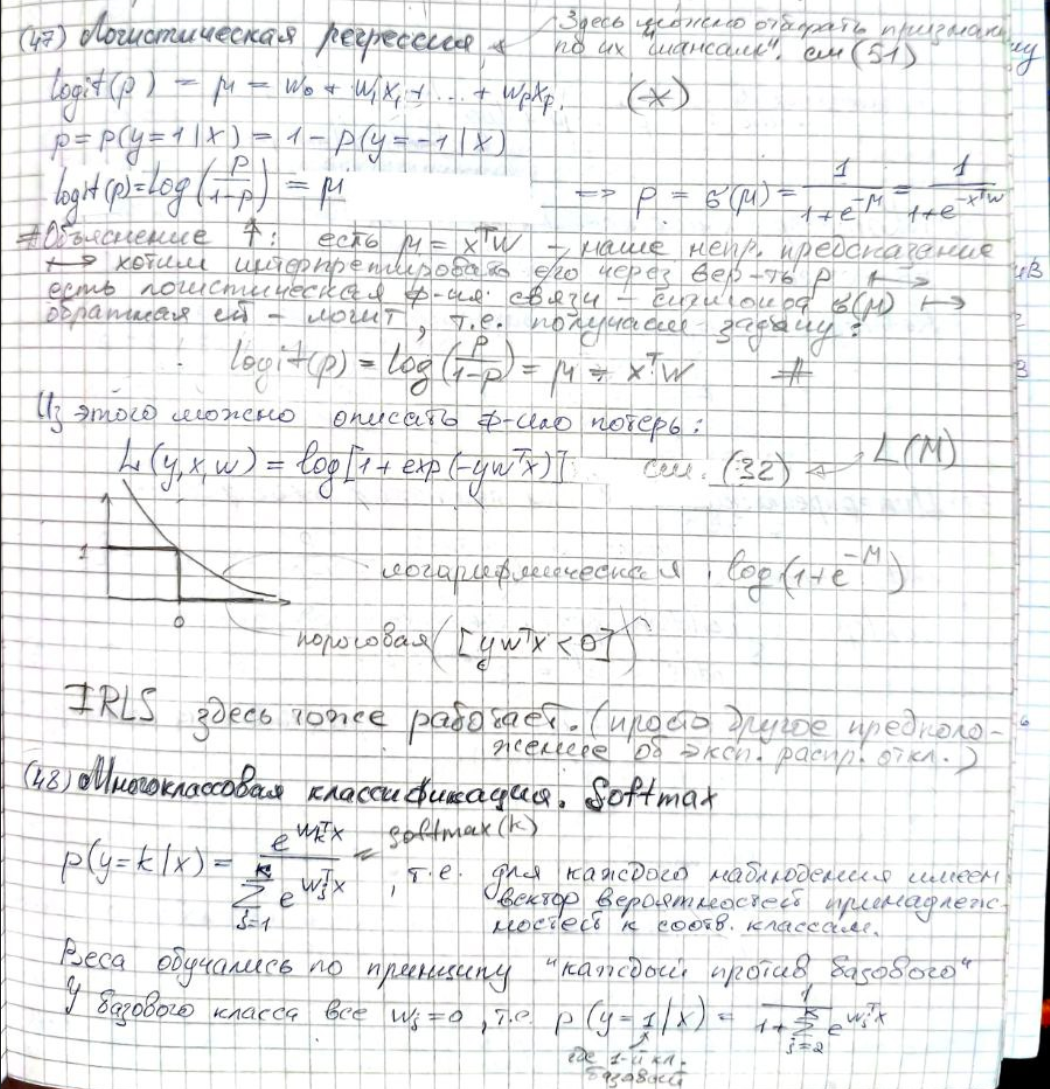 (47) Логистическая регрессия ← Здесь можно отбирать признаки
по их "шансам". см (51)
logit(p) = μ = w₀ + w₁x₁ + ... + wₚxₚ. (*)
p = p(y=1|x) = 1 - p(y=-1|x)
logit(p) = log(p/(1-p)) = μ <=> p = σ(μ) = 1/(1+e^{-μ}) = 1/(1+e^{-xᵀw})
#Объяснение ↑: есть μ = xᵀw – наше непр. предсказание
↦ хотим интерпретировать его через вер-ть p ↦
есть логистическая ф-ия связи – сигмоида σ(μ) ↦
обратная ей – логит, т.е. получаем задачу:
logit(p) = log(p/(1-p)) = μ = xᵀw #
Из этого можно описать ф-ию потерь:
L(y,x,w) = log[1 + exp(-ywᵀx)] см. (32) ← L(M)
1
логарифмическая log(1+e^{-M})
0
пороговая ([ywᵀx < 0])
IRLS здесь тоже работает. (просто другое предполо-
жение об эксп. распр. откл.)
(48) Многоклассовая классификация. Softmax
p(y=k|x) = e^{wₖᵀx} / Σ_{j=1}^{K} e^{wⱼᵀx} = softmax(k), т.е. для каждого наблюдения имеем
вектор вероятностей принадлеж-
ностей к соотв. классам.
Веса обучались по принципу "каждый против базового"
У базового класса все wⱼ=0, т.е. p(y=1|x) = 1/(1+Σ_{j=2}^{K} e^{wⱼᵀx})
где 1-й кл.
базовый